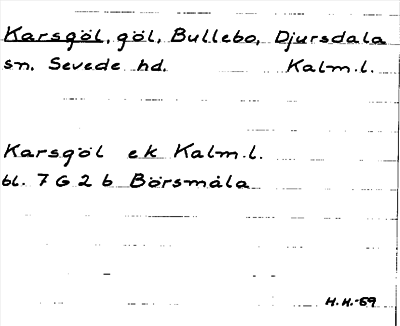 Karsgöl, göl, Bullebo, Djursdala
sn. Sevede hd. Kalm.l.
Karsgöl ek Kalm.l.
bl. 7 G 2 b Börsmåla
H.H.-69